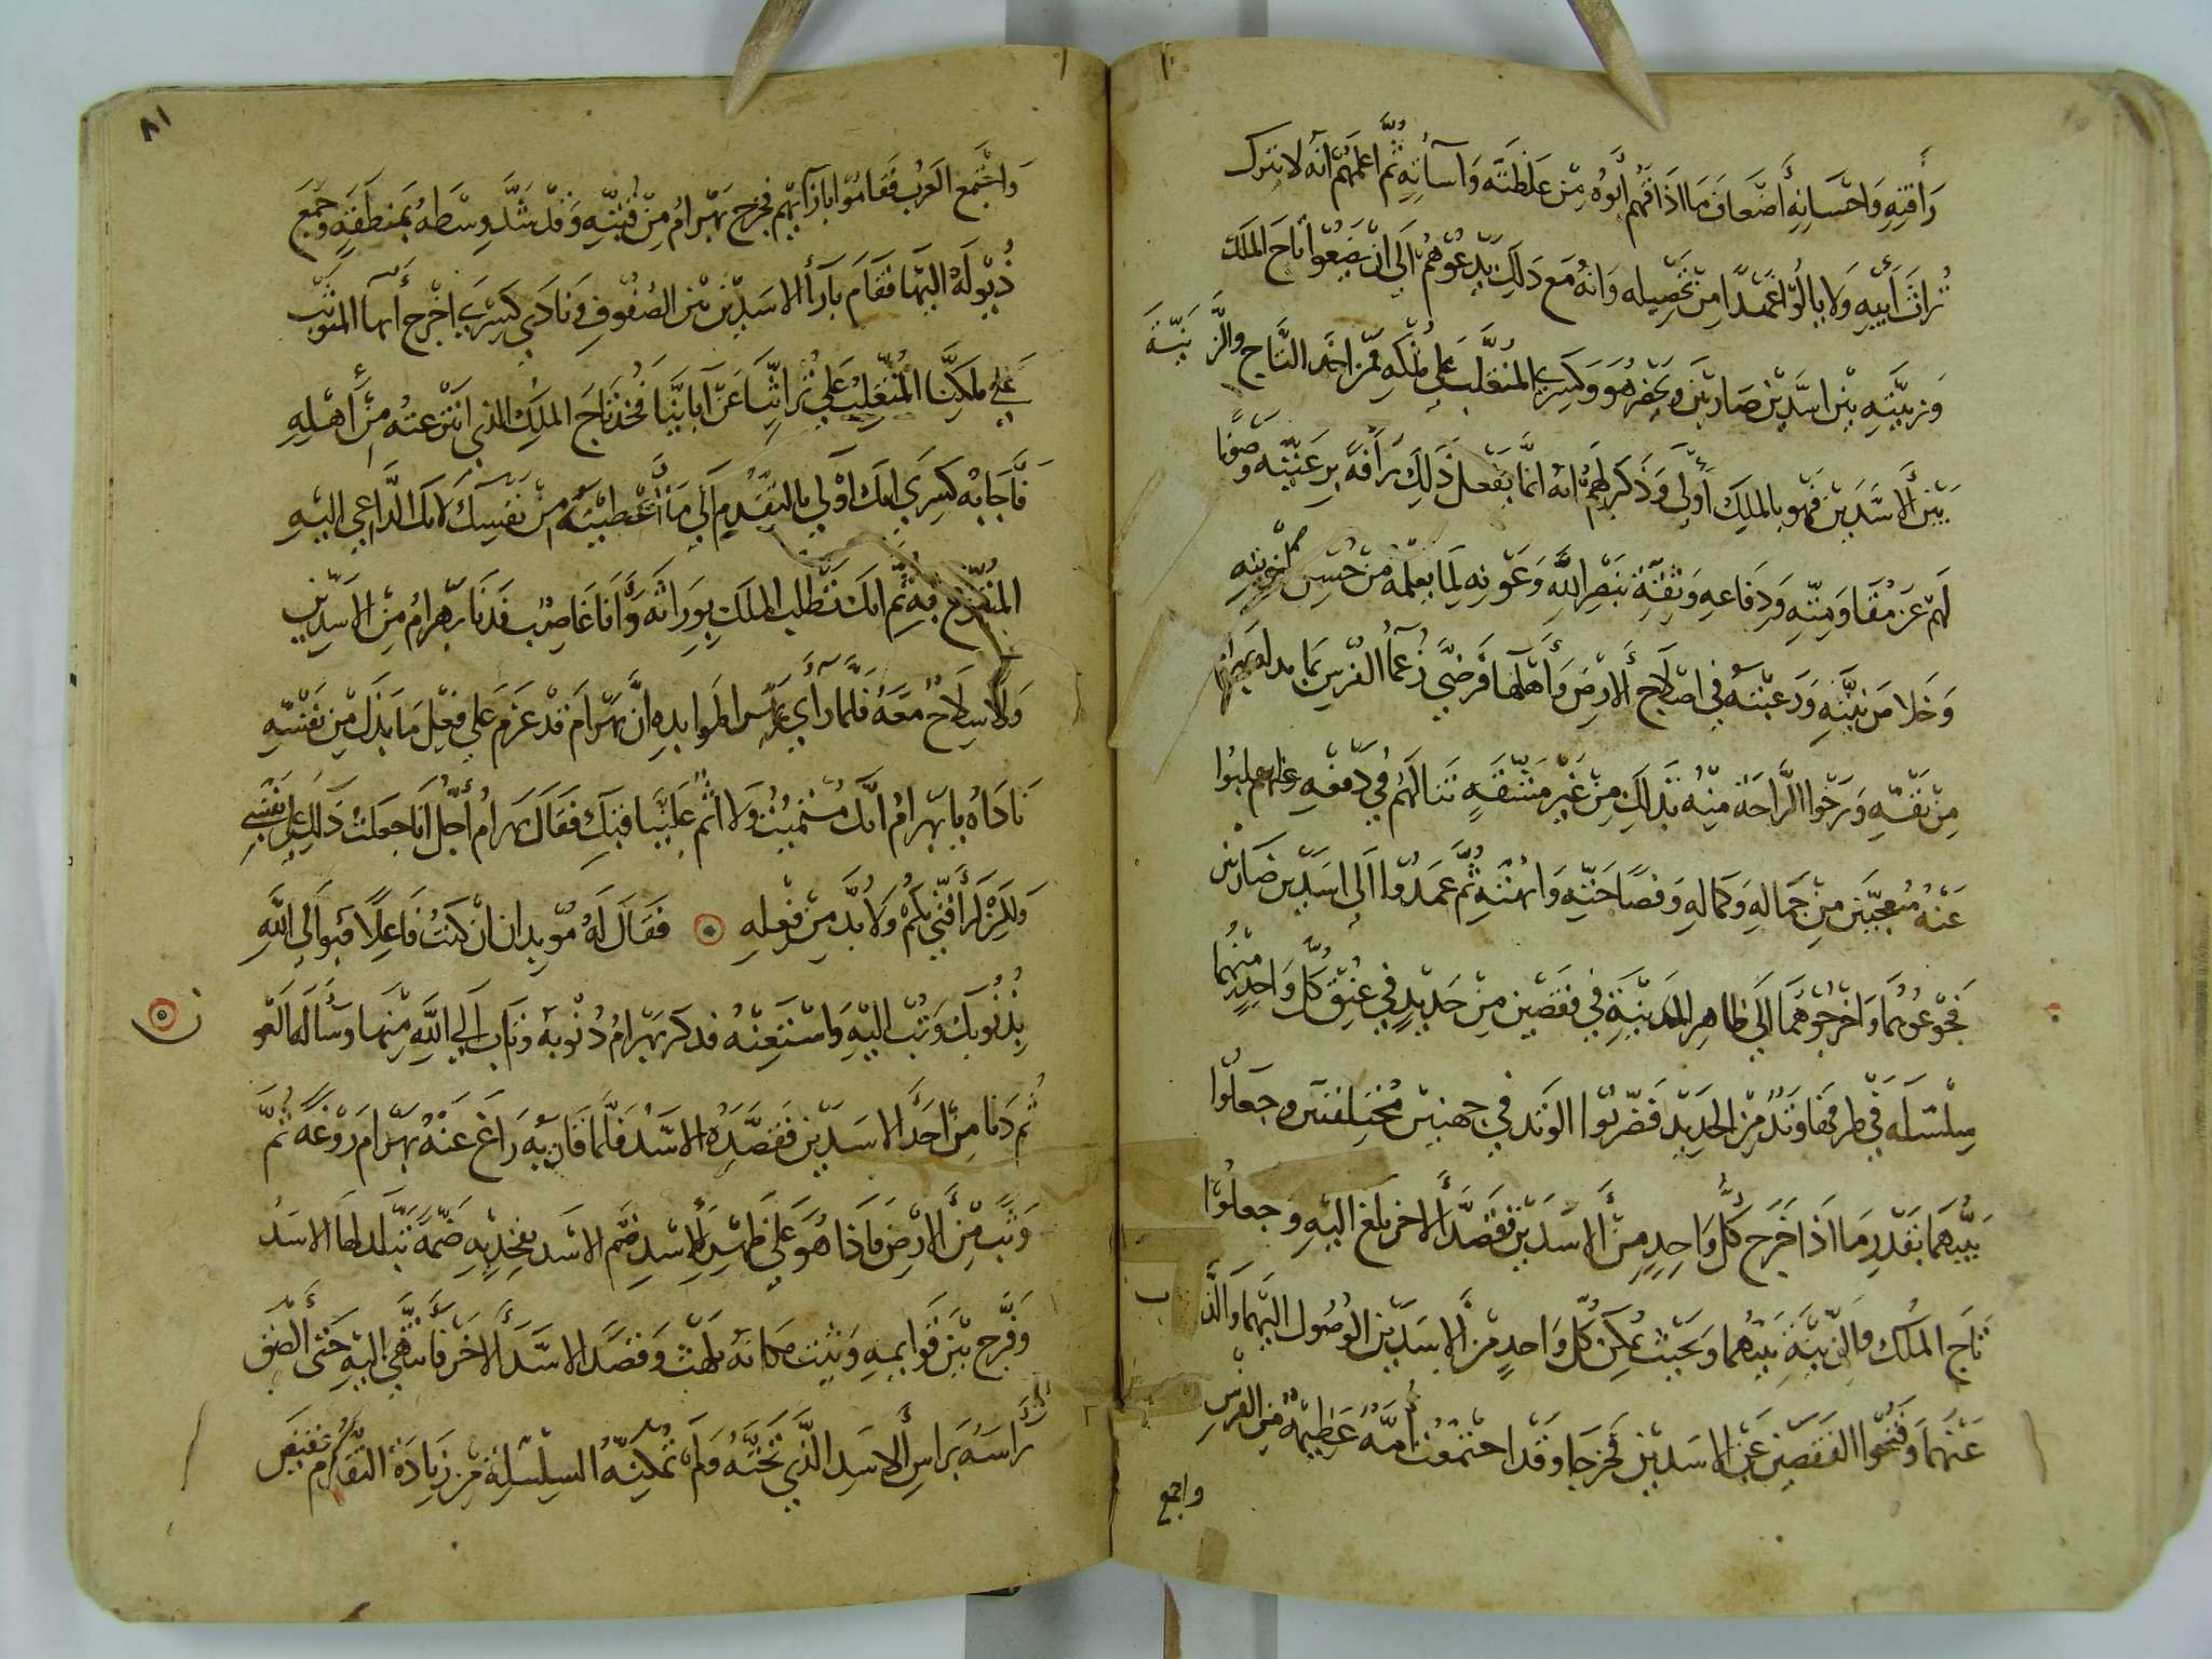 رأفته واحسانه أضعاف ما اذاقهم أبوه من غلظته واسآته ثم اعلمهم انه لا يترك
تراث أبيه ولا يألوا عمدا من تحصيله وانه مع ذلك يدعوهم الى ان يضعوا تاج الملك
وزينته بين اسدين ضاريين ويحضر هو وكسرى المتغلب على ملكه فمن اخذ التاج والزينة
بين الاسدين فهو بالملك أولى وذكر لهم انه انما يفعل ذلك رأفة برعيته وصونا
لهم عن مقاومته ودفاعه وثقة بنصر الله وعونه لما يعلمه من حسن
وخلا من نيته ورغبته في اصلاح الارض وأهلها فرضي زعماء الفرس بما بدله بهرام
من نفسه ورجوا الراحة منه بذلك من غير مشقة تنالهم في دفعه
عنه متعجبين من جماله وكماله وفصاحته وابهته ثم عمدوا الى اسدين ضاريين
فجوعوهما واخرجوهما الى ظاهر المدينة في قفصين من حديد في عنق كل واحد منهما
سلسلة في طرفها وتد من الحديد فضربوا الوتد في جهتين مختلفتين وجعلوا
بينهما بقدر ما اذا خرج كل واحد من الاسدين فقصد الاخر بلغ اليه وجعلوا
تاج الملك والزينة بينهما وبحيث يمكن كل واحد من الاسدين الوصول اليهما
عنهما وفتحوا القفصين عن الاسدين فخرجا وقد اجتمعت أمة عظيمة من الفرس
واجمع
٨١
واجتمع العرب فقاموا بازآيهم فخرج بهرام من قبته وقد شد وسطه بمنطقة وجمع
ذيوله اليها فقام بازأ الاسدين بين الصفوف ونادى كسرى اخرج ايها المتوثب
على ملكنا المتغلب على تراثنا عن آبائنا فخذ تاج الملك الذي انتزعته من أهله
فأجابه كسرى انك اولى بالتقدم الى ما أعطيته من نفسك لانك الداعي اليه
المتبرع به ثم انك تطلب الملك بوراثة وأنا غاصب فدنا بهرام من الاسدين
ولا سلاح معه فلما رأى ان بهرام قد عزم على فعل ما بذل من نفسه
ناداه يا بهرام انك مستميت ولا اثم علينا فيك فقال بهرام أجل انا جعلت ذلك على نفسي
ولا بد من فعله ۞ فقال له موبدان ان كنت فاعلا فبوا الى الله
بذنوبك وتب اليه واستعنه فذكر بهرام ذنوبه وتاب الى الله منها وسأله العفو
ثم دنا من احد الاسدين فقصده الاسد فلما قاربه راغ عنه بهرام روغة ثم
وثب من الارض فاذا هو على ظهر الاسد فضم الاسد بفخذيه ضمة تبلد لها الاسد
وفرج بين قوايمه وثبت مكانه يلهث وقصد الاسد الاخر فانتهى اليه حتى ألصق
راسه براس الاسد الذي تحته ولم تمكنه السلسلة من زيادة التقدم فقبض